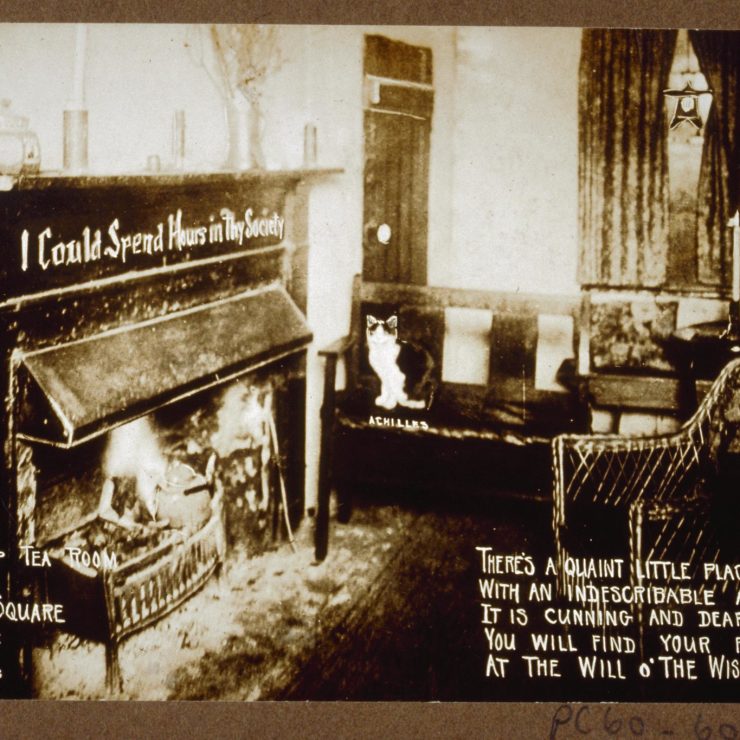 I Could Spend Hours in Thy Society
ACHILLES
TEA ROOM
SQUARE
THERE'S A QUAINT LITTLE PLAC
WITH AN INDESCRIBABLE A
IT IS CUNNING AND DEAR
YOU WILL FIND YOUR F
AT THE WILL O' THE WIS
PC60-60